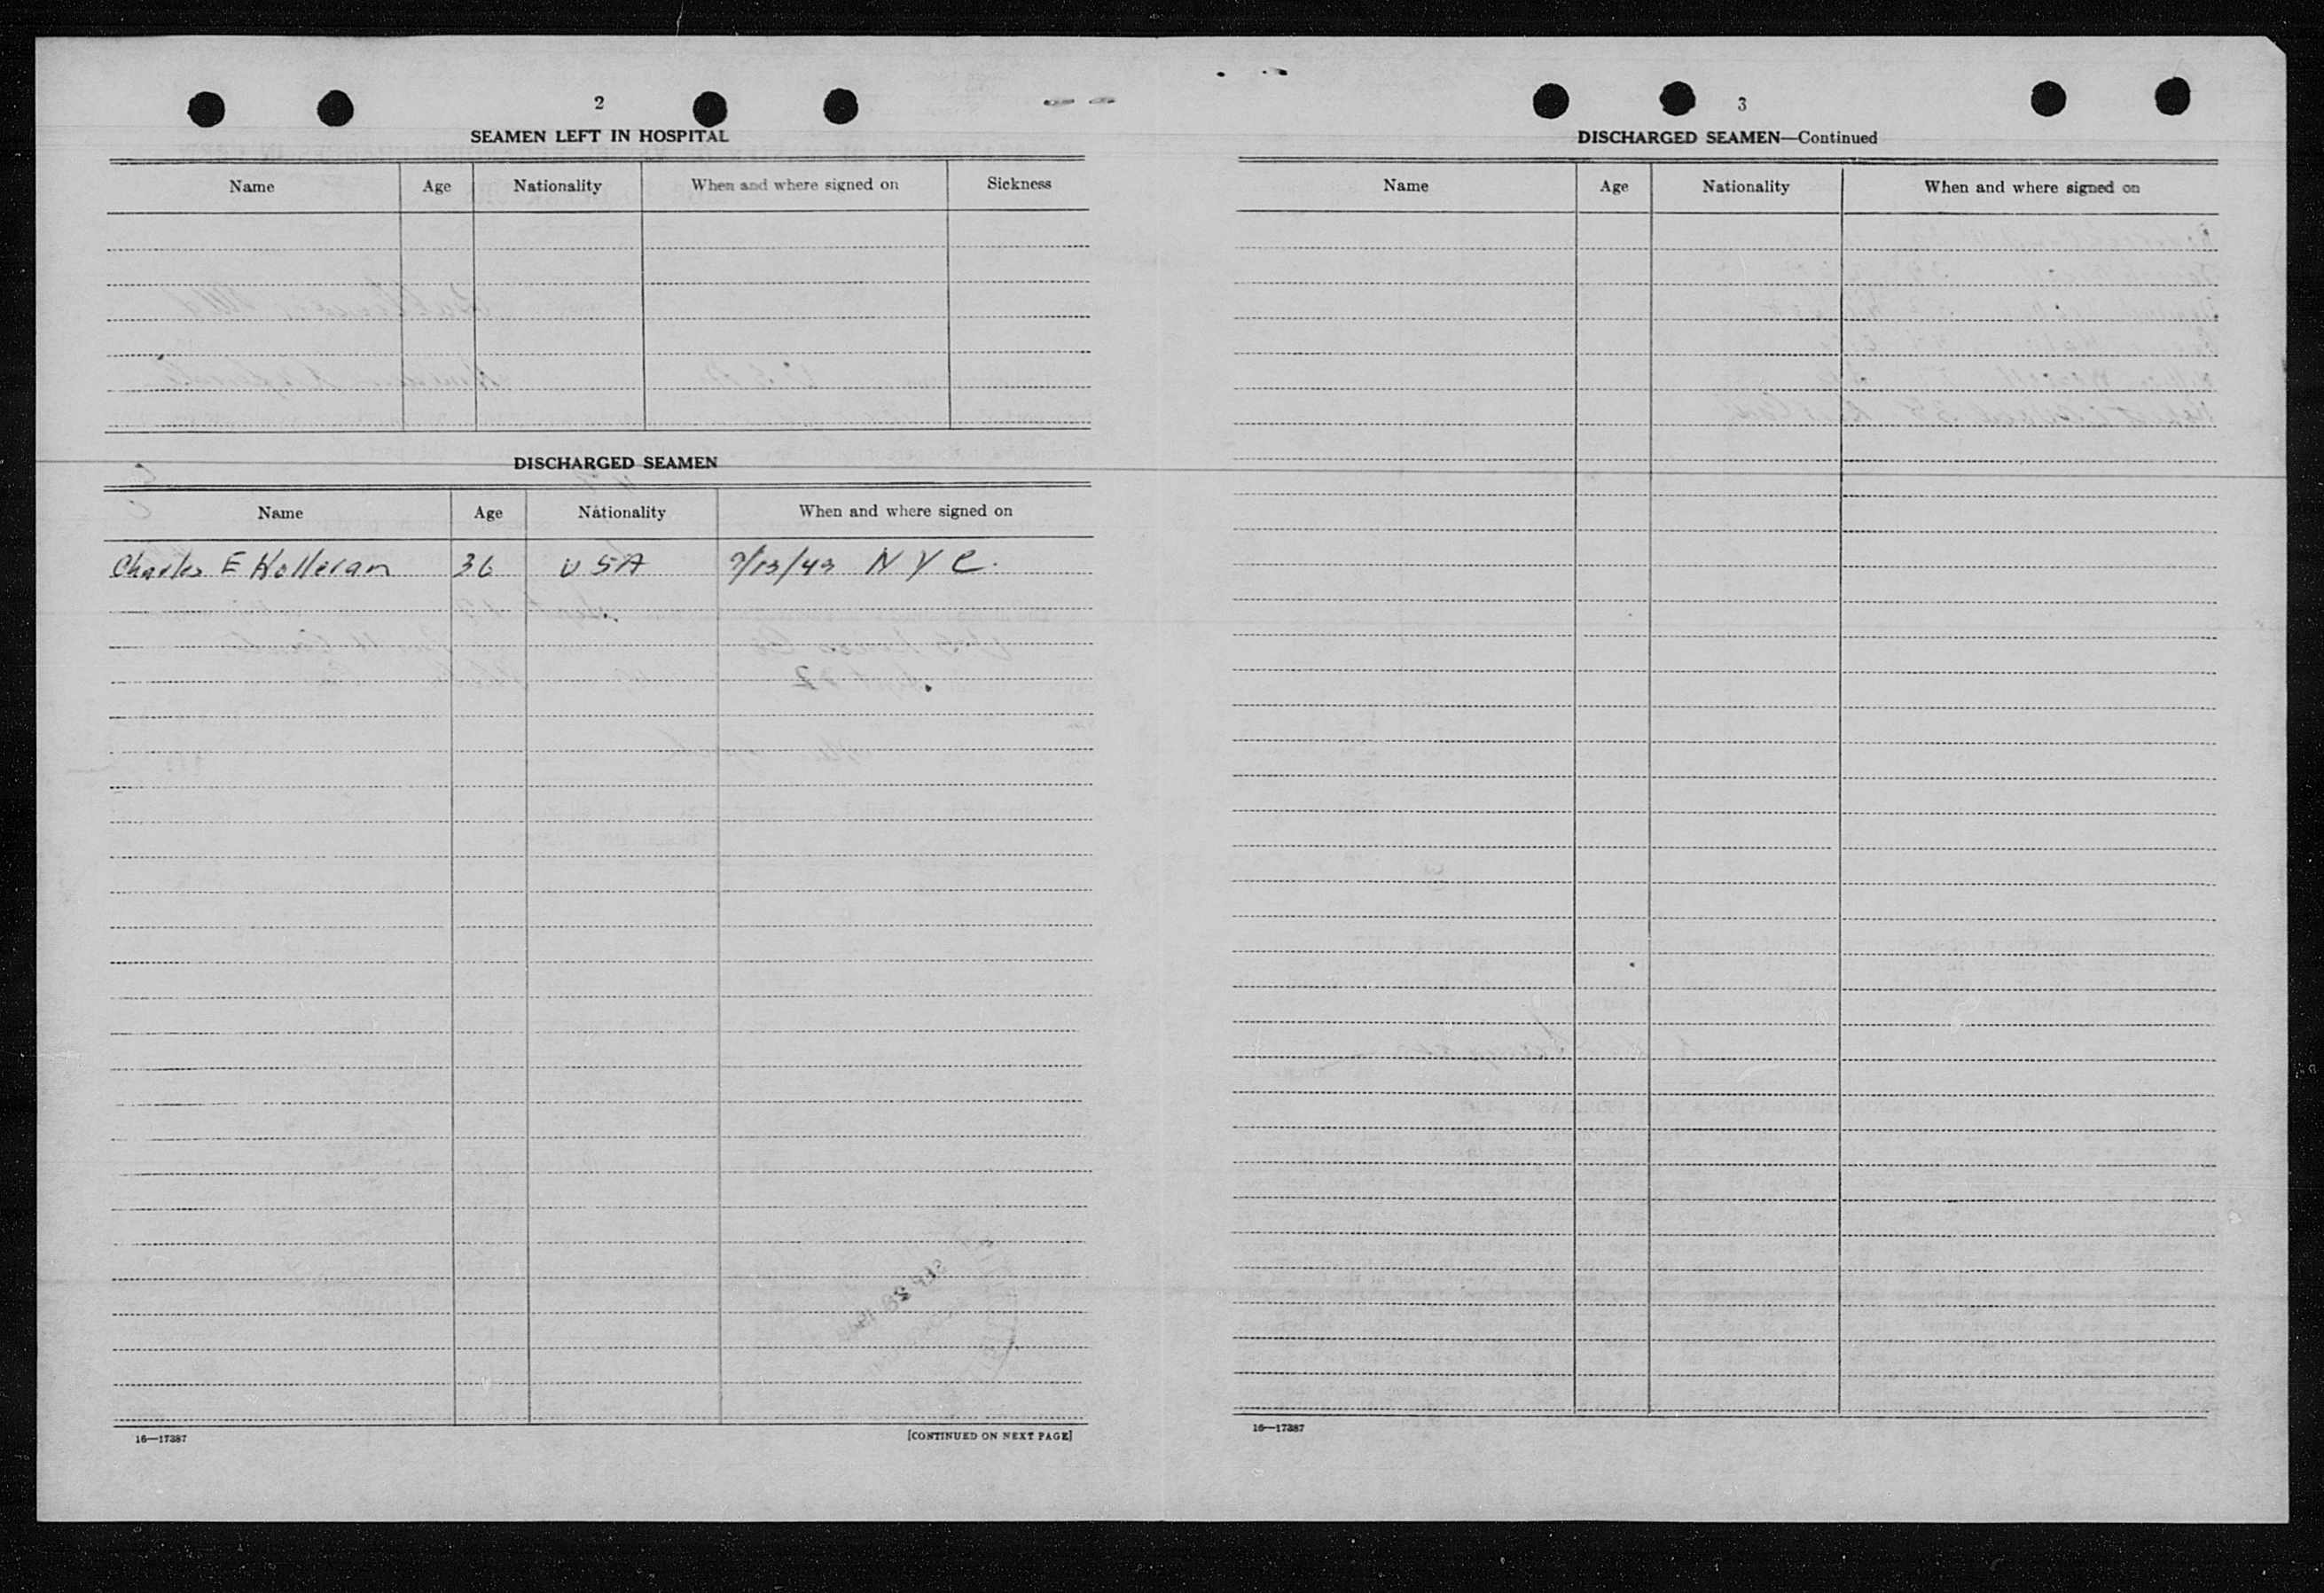 2
SEAMEN LEFT IN HOSPITAL
Name Age Nationality When and where signed on Sickness
DISCHARGED SEAMEN
Name Age Nationality When and where signed on
Charles E Holleran 36 USA 7/13/43 N Y C.
16—17387
[CONTINUED ON NEXT PAGE]
3
DISCHARGED SEAMEN—Continued
Name Age Nationality When and where signed on
16—17387